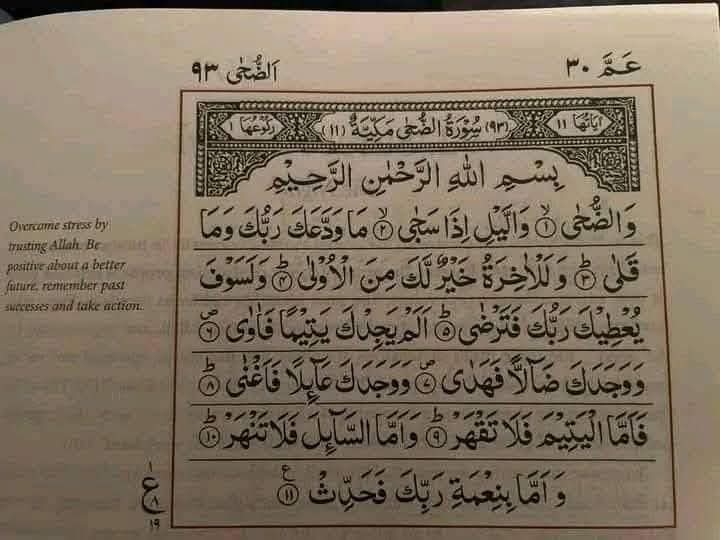 عَمَّ ٣٠
اَلضُّحٰى ٩٣
اٰيَاتُهَا ١١
(٩٣) سُوْرَةُ الضُّحٰى مَكِّيَّةٌ (١١)
رُكُوْعُهَا ١
بِسْمِ اللهِ الرَّحْمٰنِ الرَّحِيْمِ
وَالضُّحٰى ۙ﴿١﴾ وَالَّيْلِ اِذَا سَجٰى ۙ﴿٢﴾ مَا وَدَّعَكَ رَبُّكَ وَمَا
قَلٰى ؕ﴿٣﴾ وَلَلْاٰخِرَةُ خَيْرٌ لَّكَ مِنَ الْاُوْلٰى ؕ﴿٤﴾ وَلَسَوْفَ
يُعْطِيْكَ رَبُّكَ فَتَرْضٰى ؕ﴿٥﴾ اَلَمْ يَجِدْكَ يَتِيْمًا فَاٰوٰى ۪﴿٦﴾
وَوَجَدَكَ ضَآلًّا فَهَدٰى ۪﴿٧﴾ وَوَجَدَكَ عَآئِلًا فَاَغْنٰى ؕ﴿٨﴾
فَاَمَّا الْيَتِيْمَ فَلَا تَقْهَرْ ؕ﴿٩﴾ وَاَمَّا السَّآئِلَ فَلَا تَنْهَرْ ؕ﴿١٠﴾
وَاَمَّا بِنِعْمَةِ رَبِّكَ فَحَدِّثْ ﴿١١﴾ ع
Overcome stress by
trusting Allah. Be
positive about a better
future, remember past
successes and take action.
١
ع
٨
١٩